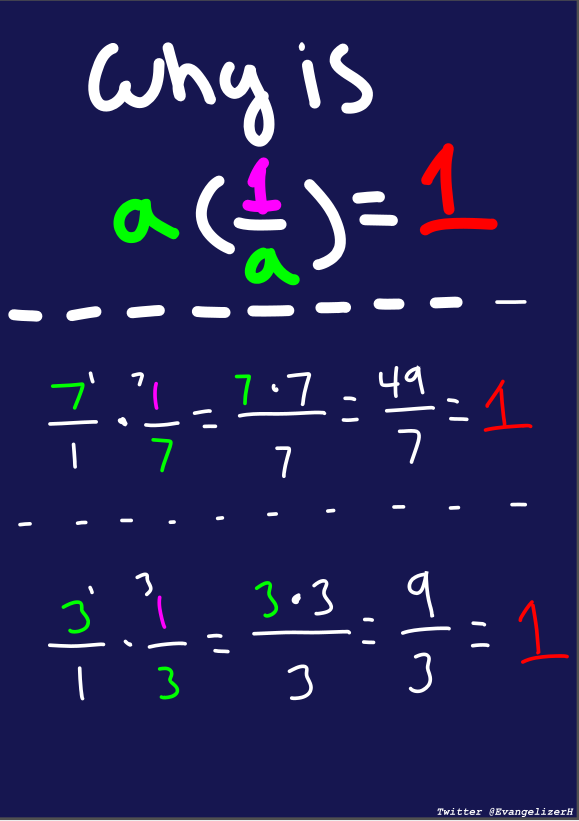 why is
a(1/a) = 1
7'/1 · ⁷1/7 = 7·7/7 = 49/7 = 1
3'/1 · ³1/3 = 3·3/3 = 9/3 = 1
Twitter @EvangelizerH